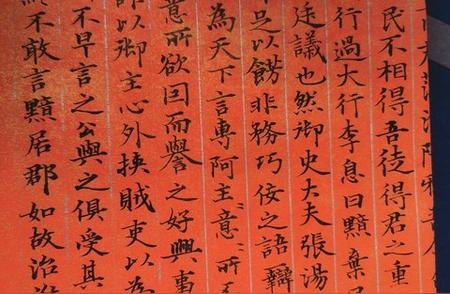 陽邪
民不相得吾徒得君之重
行過大行李息曰黯棄
廷議也然御史大夫張湯
足以餝非務巧佞之語辯
為天下言專阿主意〻所
意所欲因而譽之好興事
詐以御主心外挾賊吏以為
不早言之公與之俱受其
終不敢言黯居郡如故治